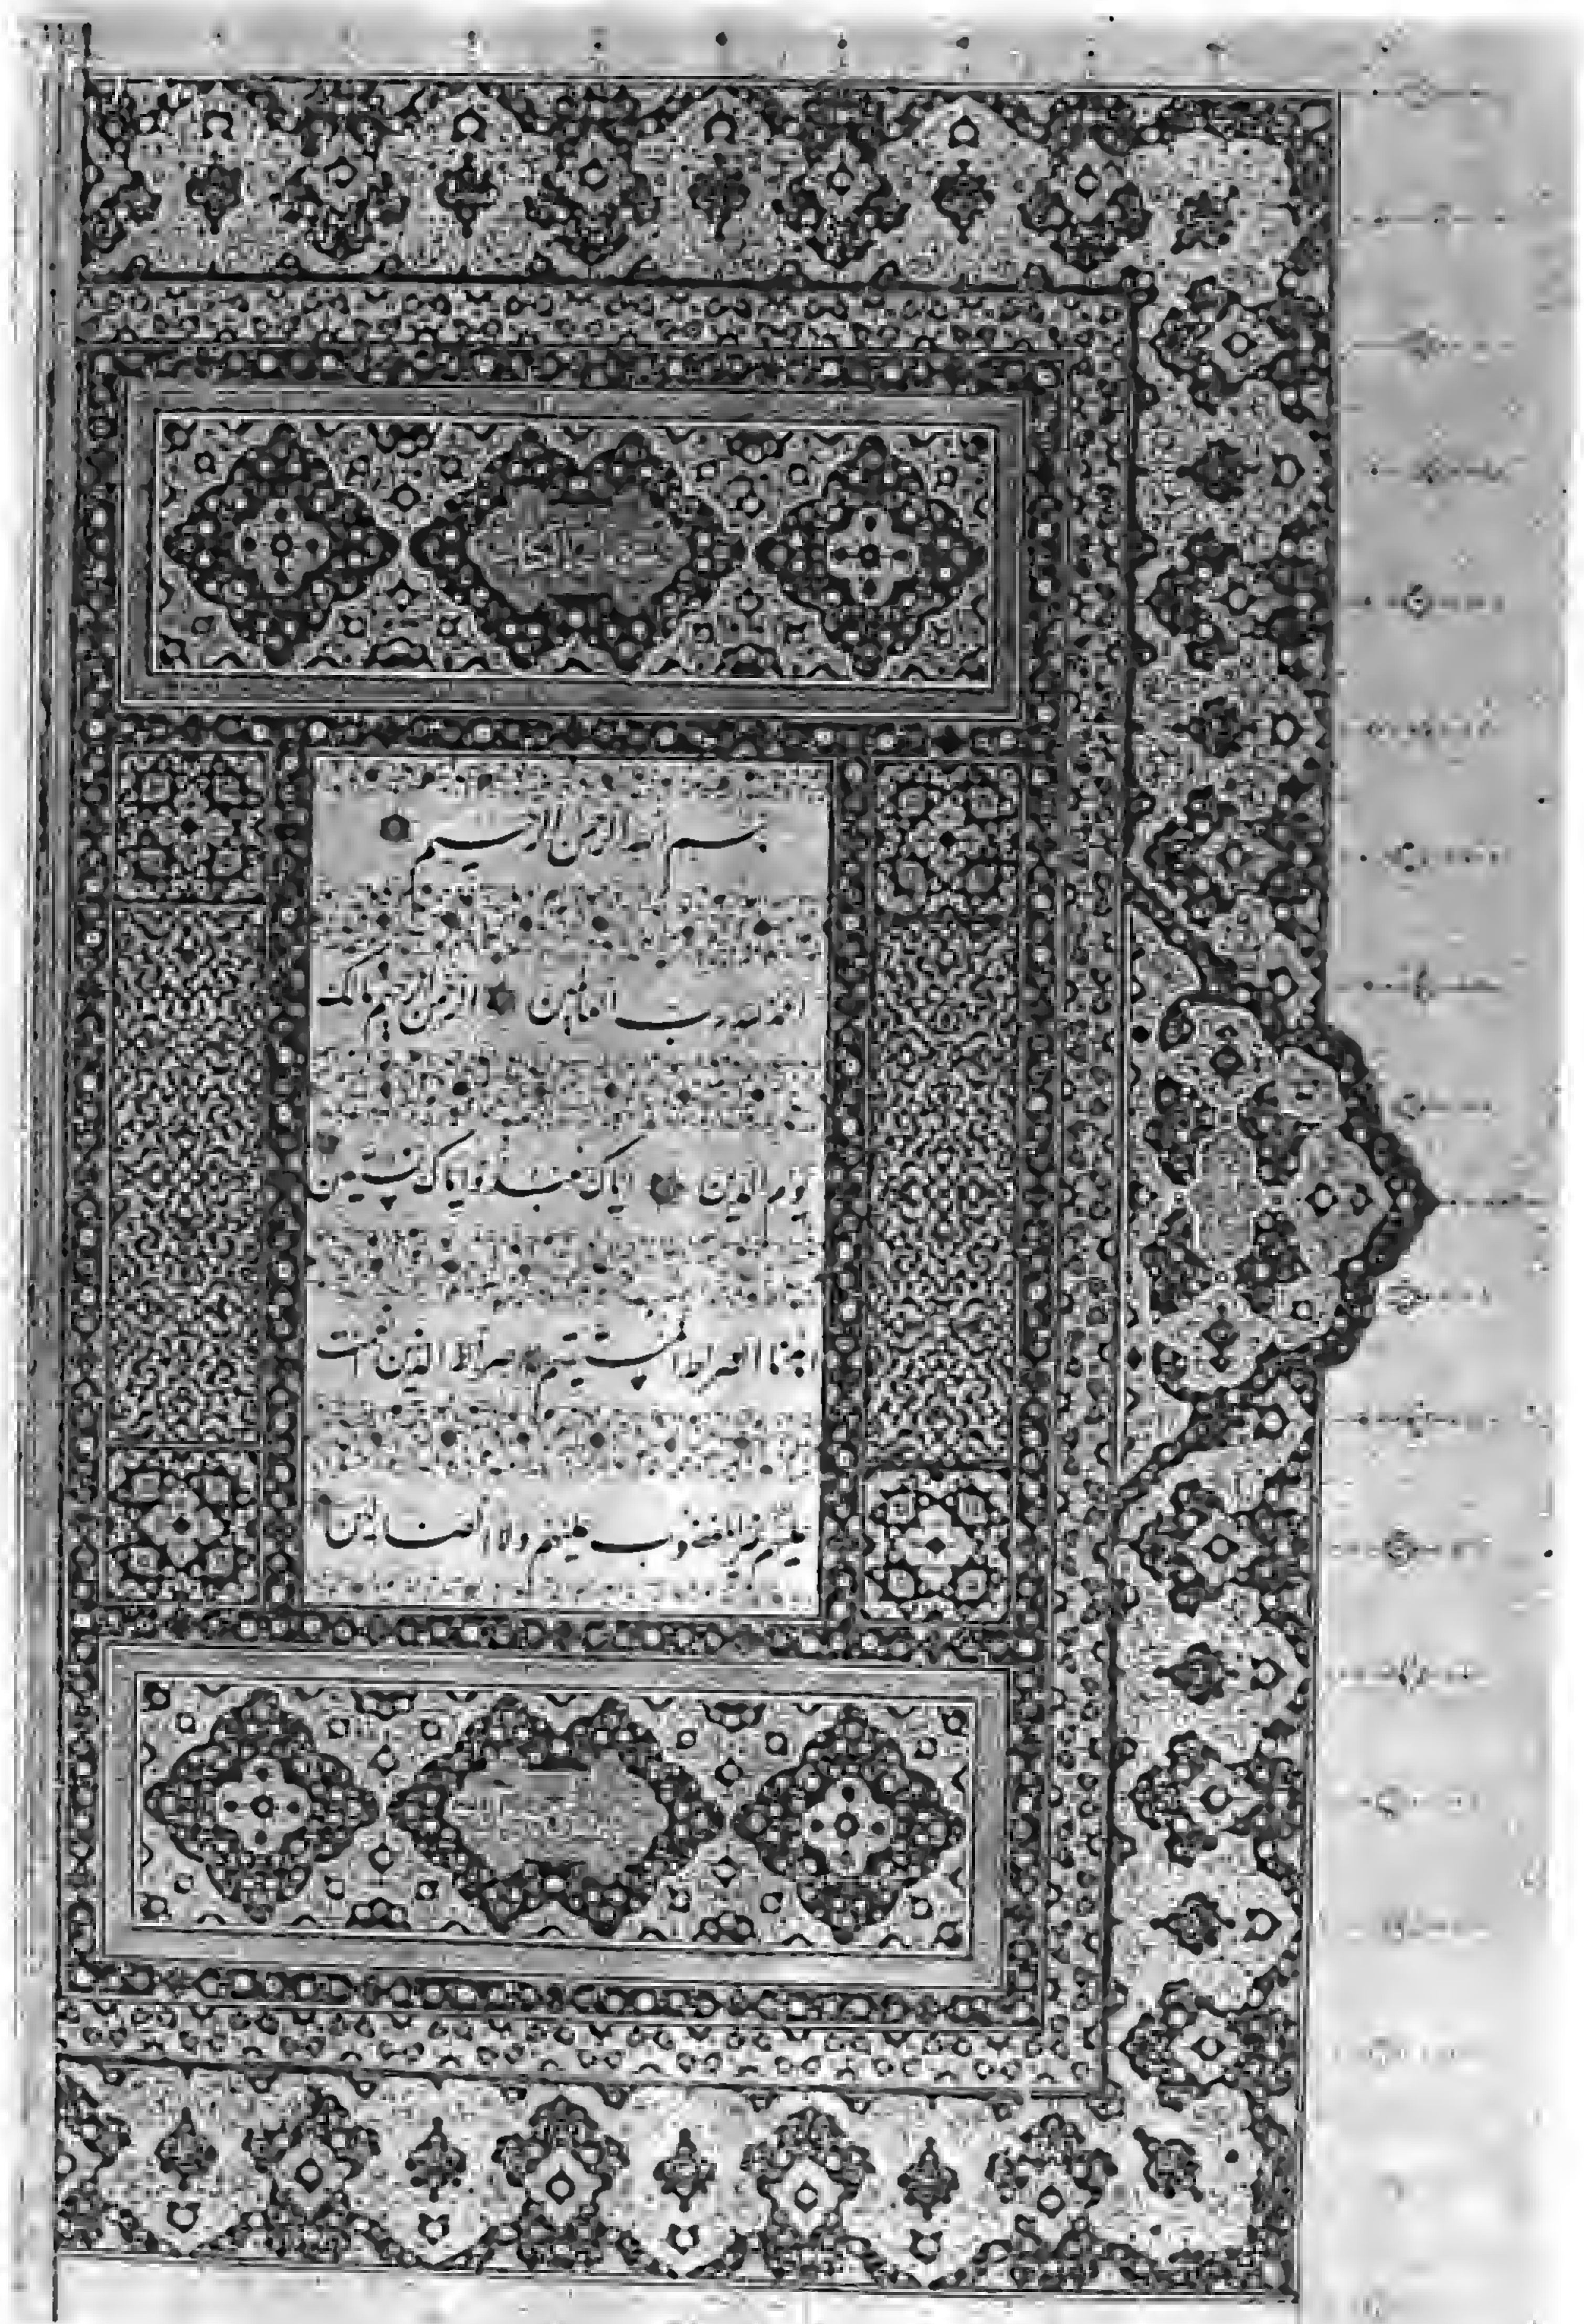 بسم الله الرحمن الرحيم
الحمد لله رب العالمين الرحمن الرحيم مالك
يوم الدين اياك نعبد واياك نستعين
اهدنا الصراط المستقيم صراط الذين انعمت
عليهم غير المغضوب عليهم ولا الضالين